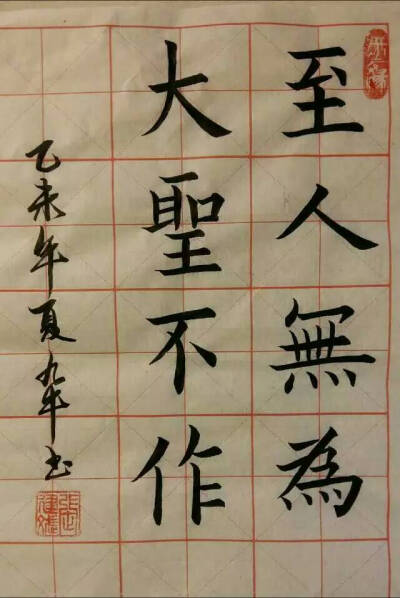 至人無為
大聖不作
乙未年夏九年书